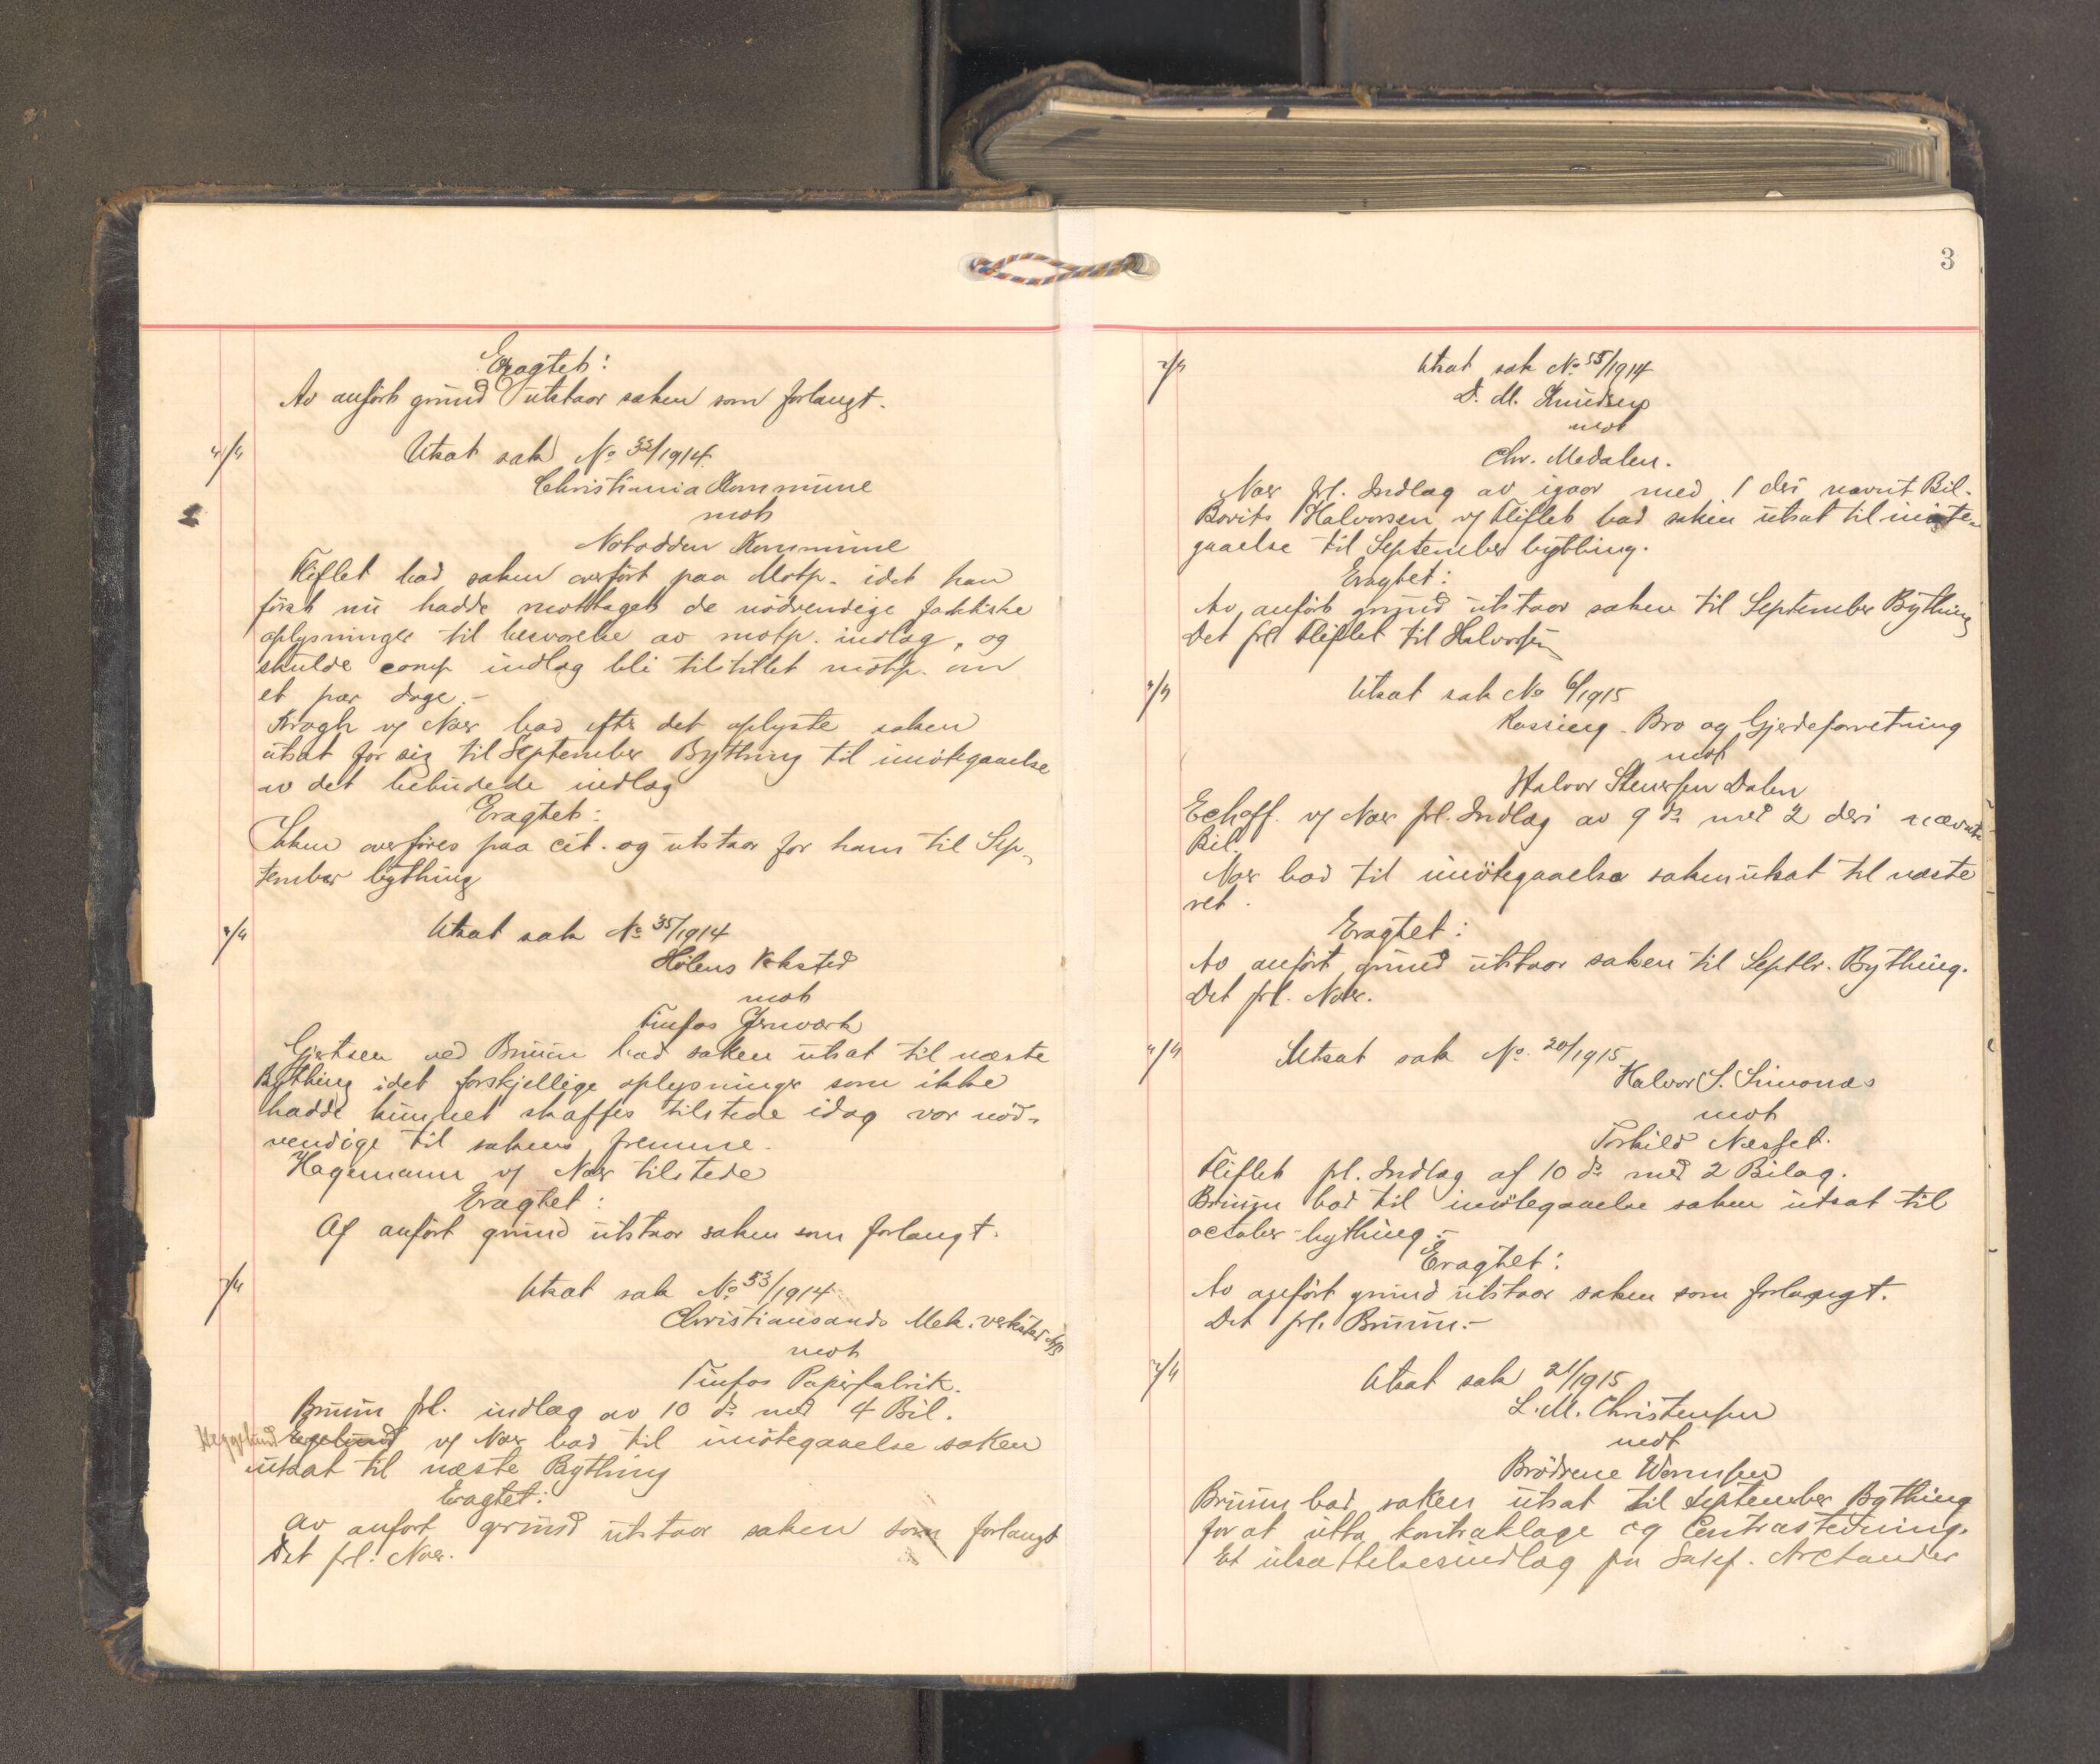 Eragtet:
Av anfört grund utstaar saken som forlangt.
Utsat sak No 33/1914.
Christiania Kommune
mot
Notodden Kommune
Fliflet bad saken overfört paa Motp. idet han
först nu hadde mottaget de nödvendige faktiske
oplysninger til besvarelse av motp. indlæg, og
skulde comp indlæg bli tilstillet motp. om
et par dage.-
Kragh vf Noer bad efter det oplyste saken
utsat for sig til September Bything til imötegaaelse
av det bebudede indlæg
Eragtet:
Saken overföres paa cit. og utstaar for ham til Sep-
tember bything
Utsat sak No 35/1914
Hölens Verksted
mot
Tinfos Jernverk
Gjertsen ved Bruun bad saken utsat til næste
Bything idet forskjellige oplysninger som ikke
hadde kunnet skaffes tilstede idag var nöd-
vendige til sakens fremme.
Hagemann vf Noer tilstede
Eragtet:
Af anfört grund utstaar saken som forlangt.
Utsat sak No 53/1914
Christiansands Mek. verksted A/S
mot
Tinfos Papirfabrik.
Bruun frl. indlæg av 10 ds med 4 Bil.
Heggelund Egelund vf Noer bad til imötegaaelse saken
utsat til næste Bything
Eragtet:
Av anfört grund utstaar saken som forlangt
Det frl. Noer.
3
Utsat sak No 55/1914
D. M. Knudsen
mot
Chr. Medalen.
Noer frl. Indlæg av igaar med 1 deri nævnt Bil.
Halvorsen vf Fliflet bad saken utsat til imöte-
gaaelse til September bything.
Eragtet:
Av anfört grund utstaar saken til September Bything
Det frl Fliflet til Halvorsen
Utsat sak No 6/1915
Bro og Gjerdeforretning
mot
Halvor Stenersen Dalen
Echoff. vf Noer frl. Indlæg av 9 ds med 2 deri nævnte
Bil.
Noer bad til imötegaaelse saken utsat til næste
ret.
Eragtet:
Av anfört grund utstaar saken til Septbr. Bything.
Det frl. Noer.
Utsat sak No. 20/1915
Halvor S. Simonæs
mot
Torkild Næsset.
Fliflet frl. Indlæg af 10 ds med 2 Bilag.
Bruun bad til imötegaaelse saken utsat til
october-bything.-
Eragtet:
Av anfört grund utstaar saken som forlangt.
Det frl. Bruun.-
Utsat sak 21/1915
L. M. Christensen
mot
Brödrene Wermsen
Bruun bad saken utsat til September Bything
for at utta kontraklage og Contrastevning.
Et utsættelsesindlæg fra Sakf. Arctander